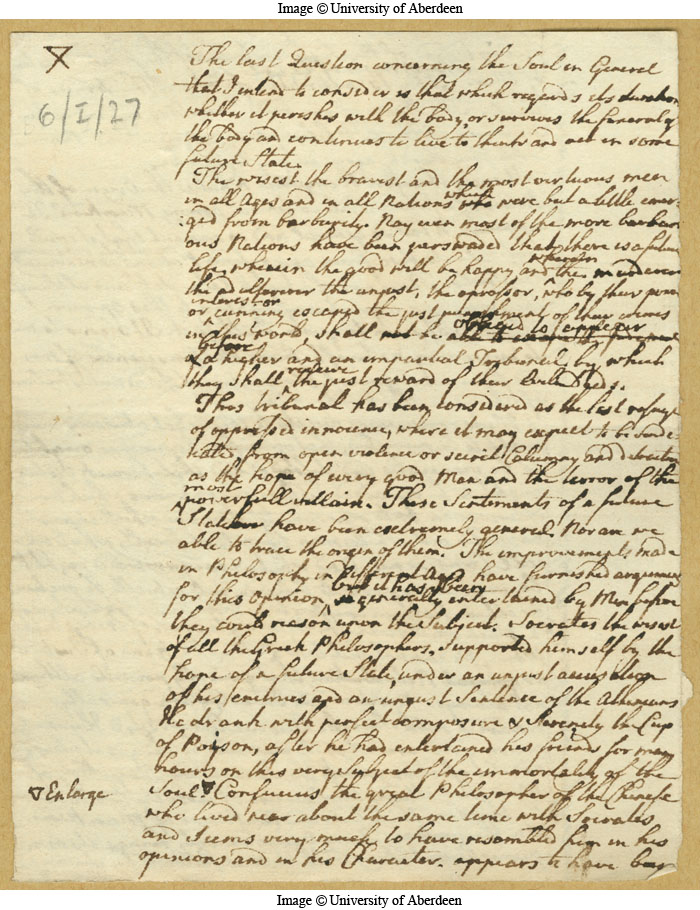 Image © University of Aberdeen
X
6/I/27
The last Question concerning the Soul in General
that I intend to consider is that which regards its duration
whether it perishes with the body, or survives the funeral of
the body and continues to live to think and act in some
future State.
The wisest the bravest and the most virtuous men
in all Ages and in all Nations who were but a little emer-
which
:ged from barbarity. Nay even most of the more barbar
ous Nations have been perswaded that there is a future
life, wherein the good will be happy and the murderer
wherein
the adulterer the unjust, the opressor, who by their power
interest or
or cunning escaped the just punishment of their crimes
in this world, shall not be
obliged to appear
before
a higher and an impartial Tribunal by which
they shall the just reward of their Evil Deeds.
receive
This tribunal has been considered as the last refuge
of oppressed innocence, where it may expect to be vindi-
cated, from open violence or secret Calumny and
as the hope of every good Man and the terror of the
most
powerfull villain. These Sentiments of a future
State have been extremely general. Nor are we
able to trace the origin of them. The improvements made
in Philosophy in different Ages have furnished arguments
but it has been
for this opinion, generally entertained by Men before
they could reason upon the Subject. Socrates the wisest
of all the Greek Philosophers, Supported himself by the
hope of a future State, under an unjust accusation
of his enemies and an unjust Sentence of the Athenians
He drank with perfect composure & Serenity the Cup
of Poison, after he had entertained his friends for many
hours on this very Subject of the immortality of the
Enlarge
Soul Confucius the great Philosopher of the Chinese
who lived near about the same time with Socrates
and seems very much to have resembled him in his
opinions and in his Character. appears to have been
Image © University of Aberdeen